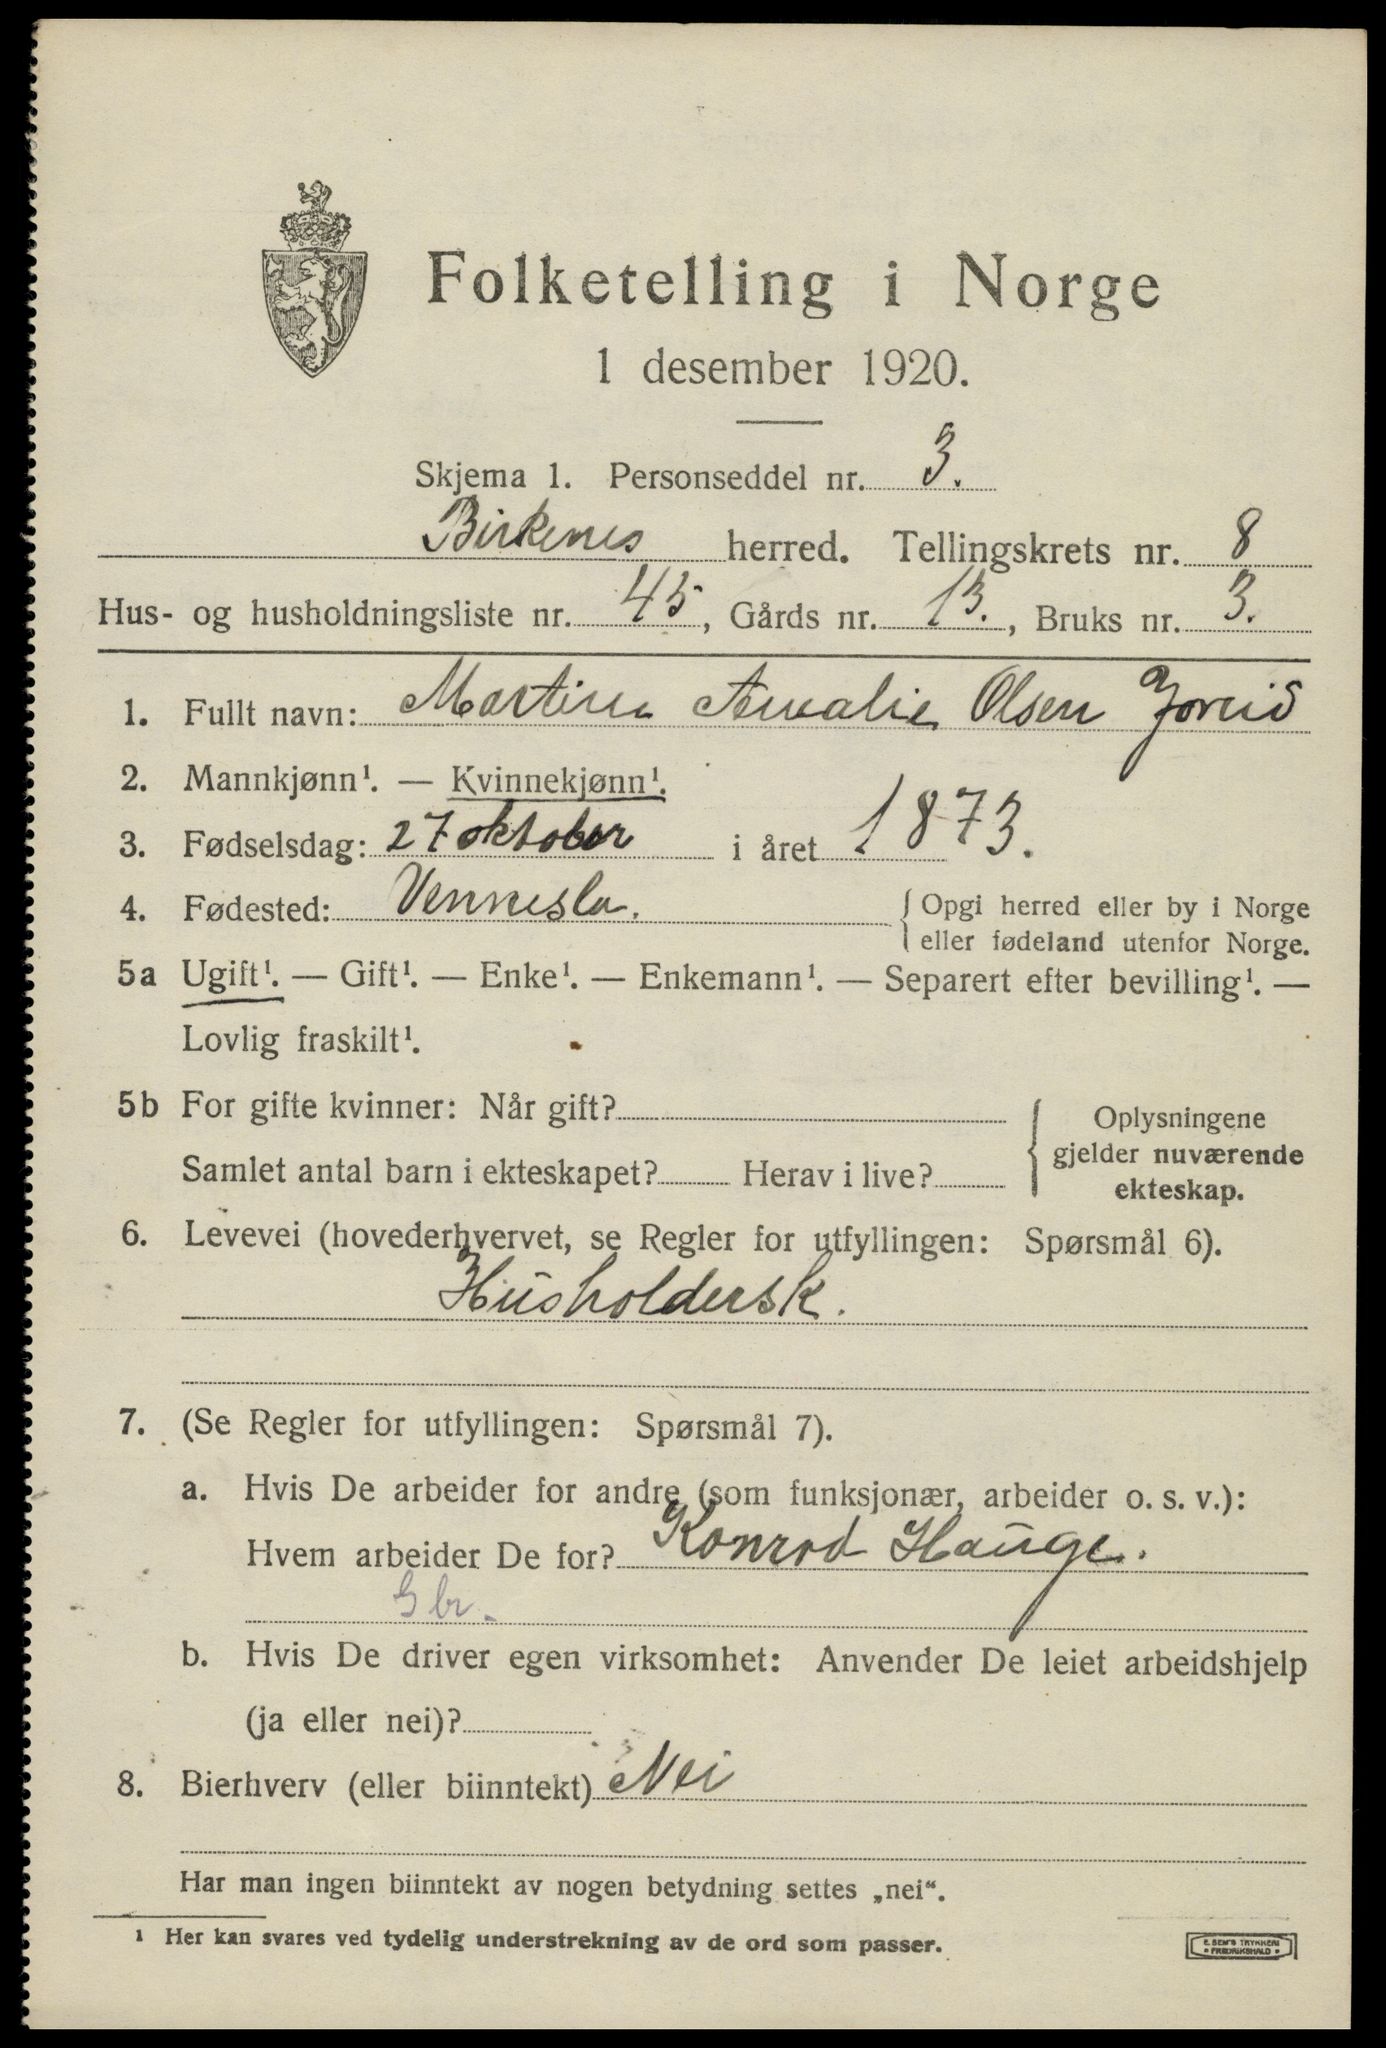 Folketelling i Norge
1 desember 1920.
Skjema 1. Personseddel nr. 3.
Birkenes herred. Tellingskrets nr. 8
Hus- og husholdningsliste nr. 45, Gårds nr. 13., Bruks nr. 3.
1. Fullt navn: Martine Amalie Olsen
2. Mannkjønn¹. — Kvinnekjønn¹.
3. Fødselsdag: 27 oktober i året 1873.
4. Fødested: Vennesla. { Opgi herred eller by i Norge
eller fødeland utenfor Norge.
5a Ugift¹. — Gift¹. — Enke¹. — Enkemann¹. — Separert efter bevilling¹. —
Lovlig fraskilt¹.
5b For gifte kvinner: Når gift?
Samlet antal barn i ekteskapet? Herav i live?
Oplysningene
gjelder nuværende
ekteskap.
6. Levevei (hovederhvervet, se Regler for utfyllingen: Spørsmål 6).
Husholdersk.
7. (Se Regler for utfyllingen: Spørsmål 7).
a. Hvis De arbeider for andre (som funksjonær, arbeider o. s. v.):
Hvem arbeider De for? Konrad Hauge.
Gbr.
b. Hvis De driver egen virksomhet: Anvender De leiet arbeidshjelp
(ja eller nei)?
8. Bierhverv (eller biinntekt) Nei
Har man ingen biinntekt av nogen betydning settes „nei“.
¹ Her kan svares ved tydelig understrekning av de ord som passer.
E. SEM'S TRYKKERI
• FREDRIKSHALD •